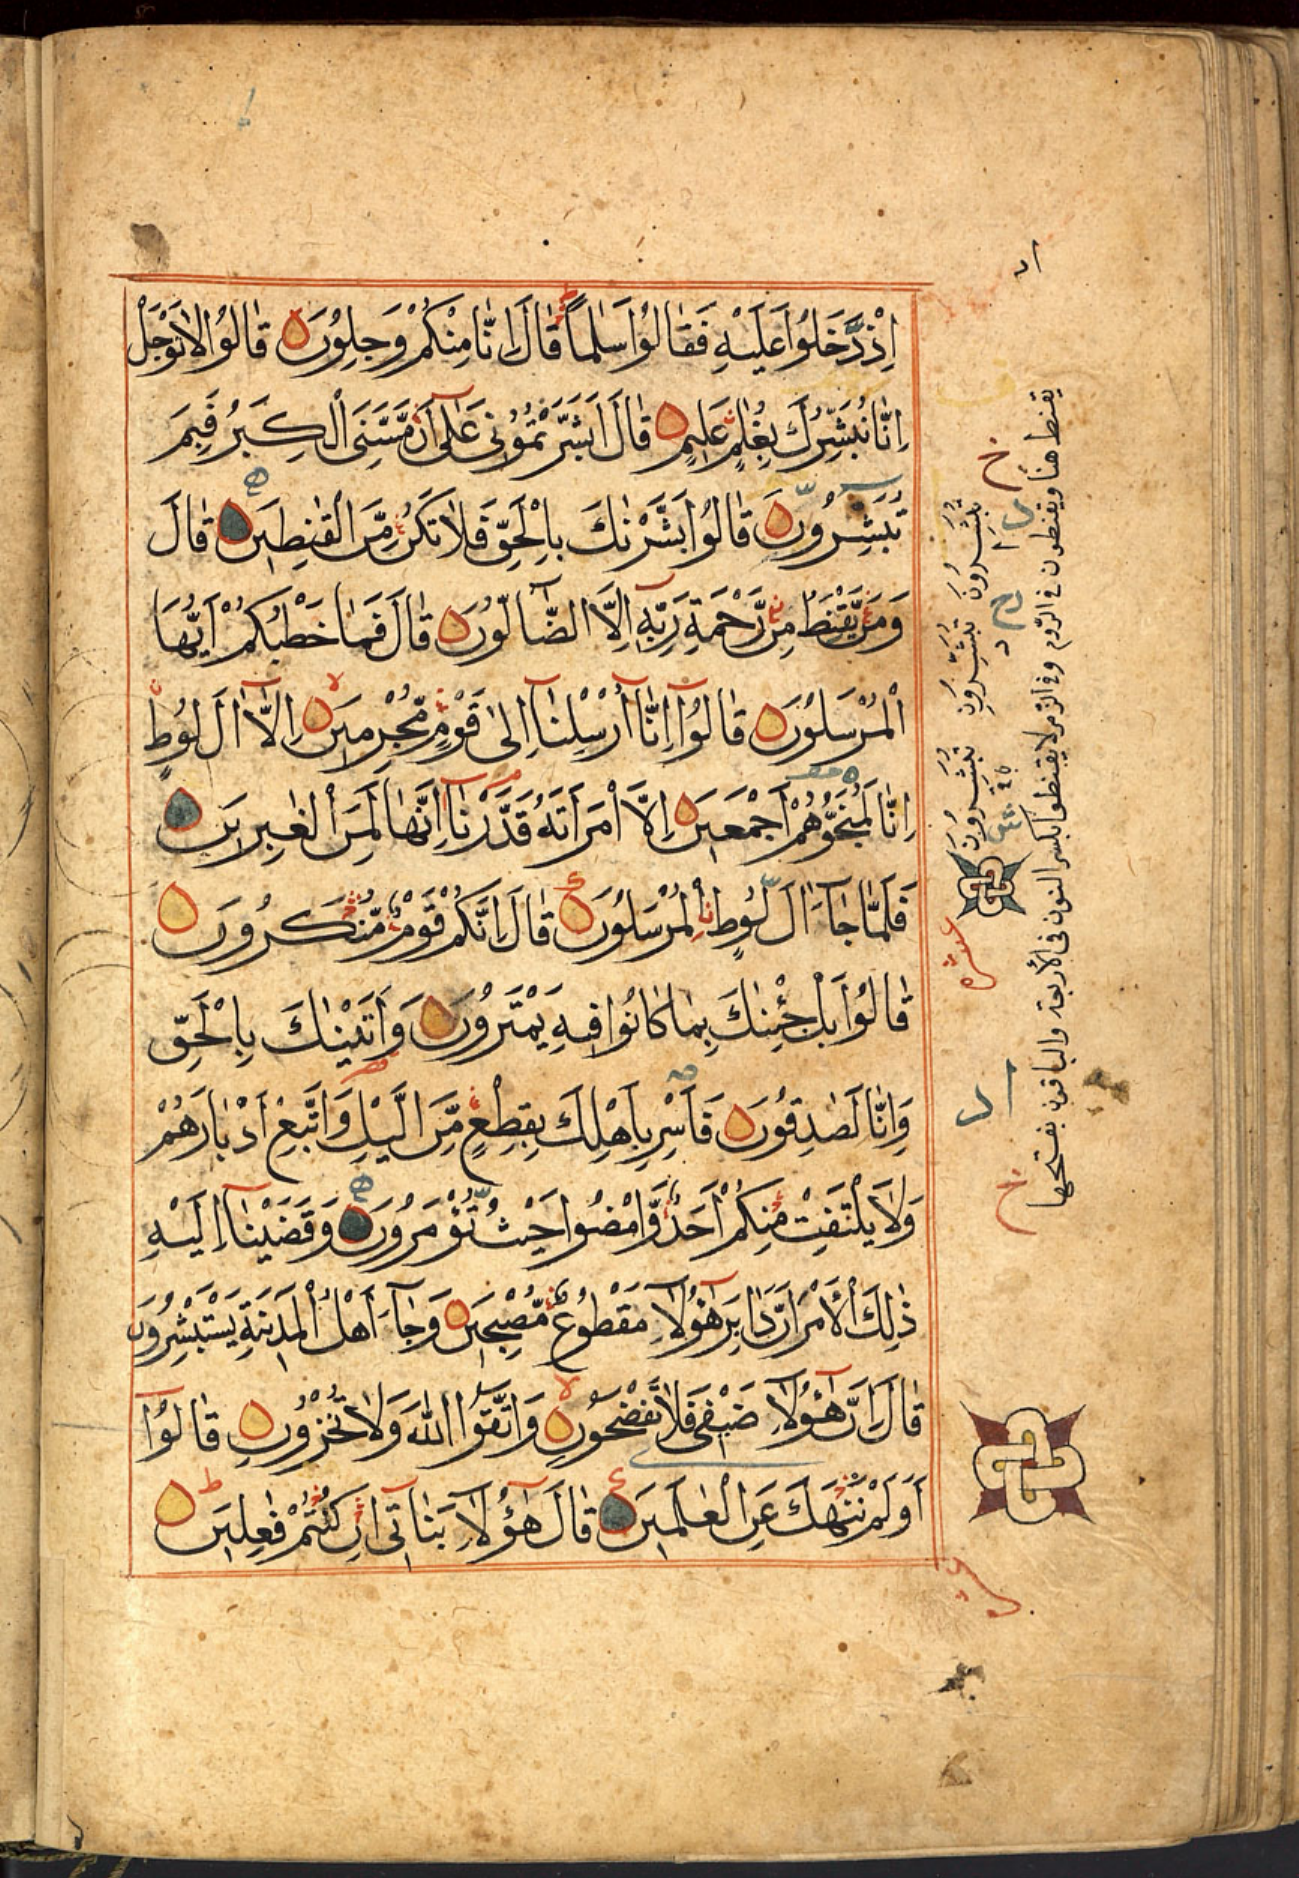 اِذْ دَّخَلُوْا عَلَيْهِ فَقَالُوْا سَلٰمًا قَالَ اِنَّا مِنْكُمْ وَجِلُوْنَ قَالُوْا لَا تَوْجَلْ
اِنَّا نُبَشِّرُكَ بِغُلٰمٍ عَلِيْمٍ قَالَ اَبَشَّرْتُمُوْنِيْ عَلٰٓى اَنْ مَّسَّنِيَ الْكِبَرُ فَبِمَ
تُبَشِّرُوْنَ قَالُوْا بَشَّرْنٰكَ بِالْحَقِّ فَلَا تَكُنْ مِّنَ الْقٰنِطِيْنَ قَالَ
وَمَنْ يَّقْنَطُ مِنْ رَّحْمَةِ رَبِّهٖٓ اِلَّا الضَّآلُّوْنَ قَالَ فَمَا خَطْبُكُمْ اَيُّهَا
الْمُرْسَلُوْنَ قَالُوْٓا اِنَّآ اُرْسِلْنَآ اِلٰى قَوْمٍ مُّجْرِمِيْنَ اِلَّآ اٰلَ لُوْطٍ
اِنَّا لَمُنَجُّوْهُمْ اَجْمَعِيْنَ اِلَّا امْرَاَتَهٗ قَدَّرْنَآ اِنَّهَا لَمِنَ الْغٰبِرِيْنَ
فَلَمَّا جَآءَ اٰلَ لُوْطِ ࣙالْمُرْسَلُوْنَ قَالَ اِنَّكُمْ قَوْمٌ مُّنْكَرُوْنَ
قَالُوْا بَلْ جِئْنٰكَ بِمَا كَانُوْا فِيْهِ يَمْتَرُوْنَ وَاَتَيْنٰكَ بِالْحَقِّ
وَاِنَّا لَصٰدِقُوْنَ فَاَسْرِ بِاَهْلِكَ بِقِطْعٍ مِّنَ الَّيْلِ وَاتَّبِعْ اَدْبَارَهُمْ
وَلَا يَلْتَفِتْ مِنْكُمْ اَحَدٌ وَّامْضُوْا حَيْثُ تُؤْمَرُوْنَ وَقَضَيْنَآ اِلَيْهِ
ذٰلِكَ الْاَمْرَ اَنَّ دَابِرَ هٰٓؤُلَآءِ مَقْطُوْعٌ مُّصْبِحِيْنَ وَجَآءَ اَهْلُ الْمَدِيْنَةِ يَسْتَبْشِرُوْنَ
قَالَ اِنَّ هٰٓؤُلَآءِ ضَيْفِيْ فَلَا تَفْضَحُوْنِ وَاتَّقُوا اللّٰهَ وَلَا تُخْزُوْنِ قَالُوْٓا
اَوَلَمْ نَنْهَكَ عَنِ الْعٰلَمِيْنَ قَالَ هٰٓؤُلَآءِ بَنَاتِيْٓ اِنْ كُنْتُمْ فٰعِلِيْنَ
تبشرون تبشرون تبشرون
يقنط هنا ويقنطون في الروم وفي الزمر لا تقنطوا بكسر النون في الأربعة والباقون بفتحها
عشره